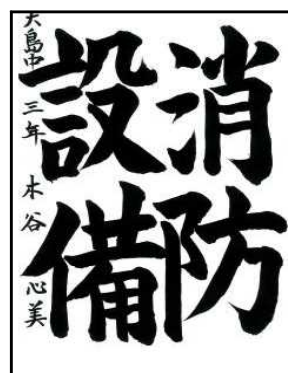 消防
設備
大島中 三年 木谷 心美